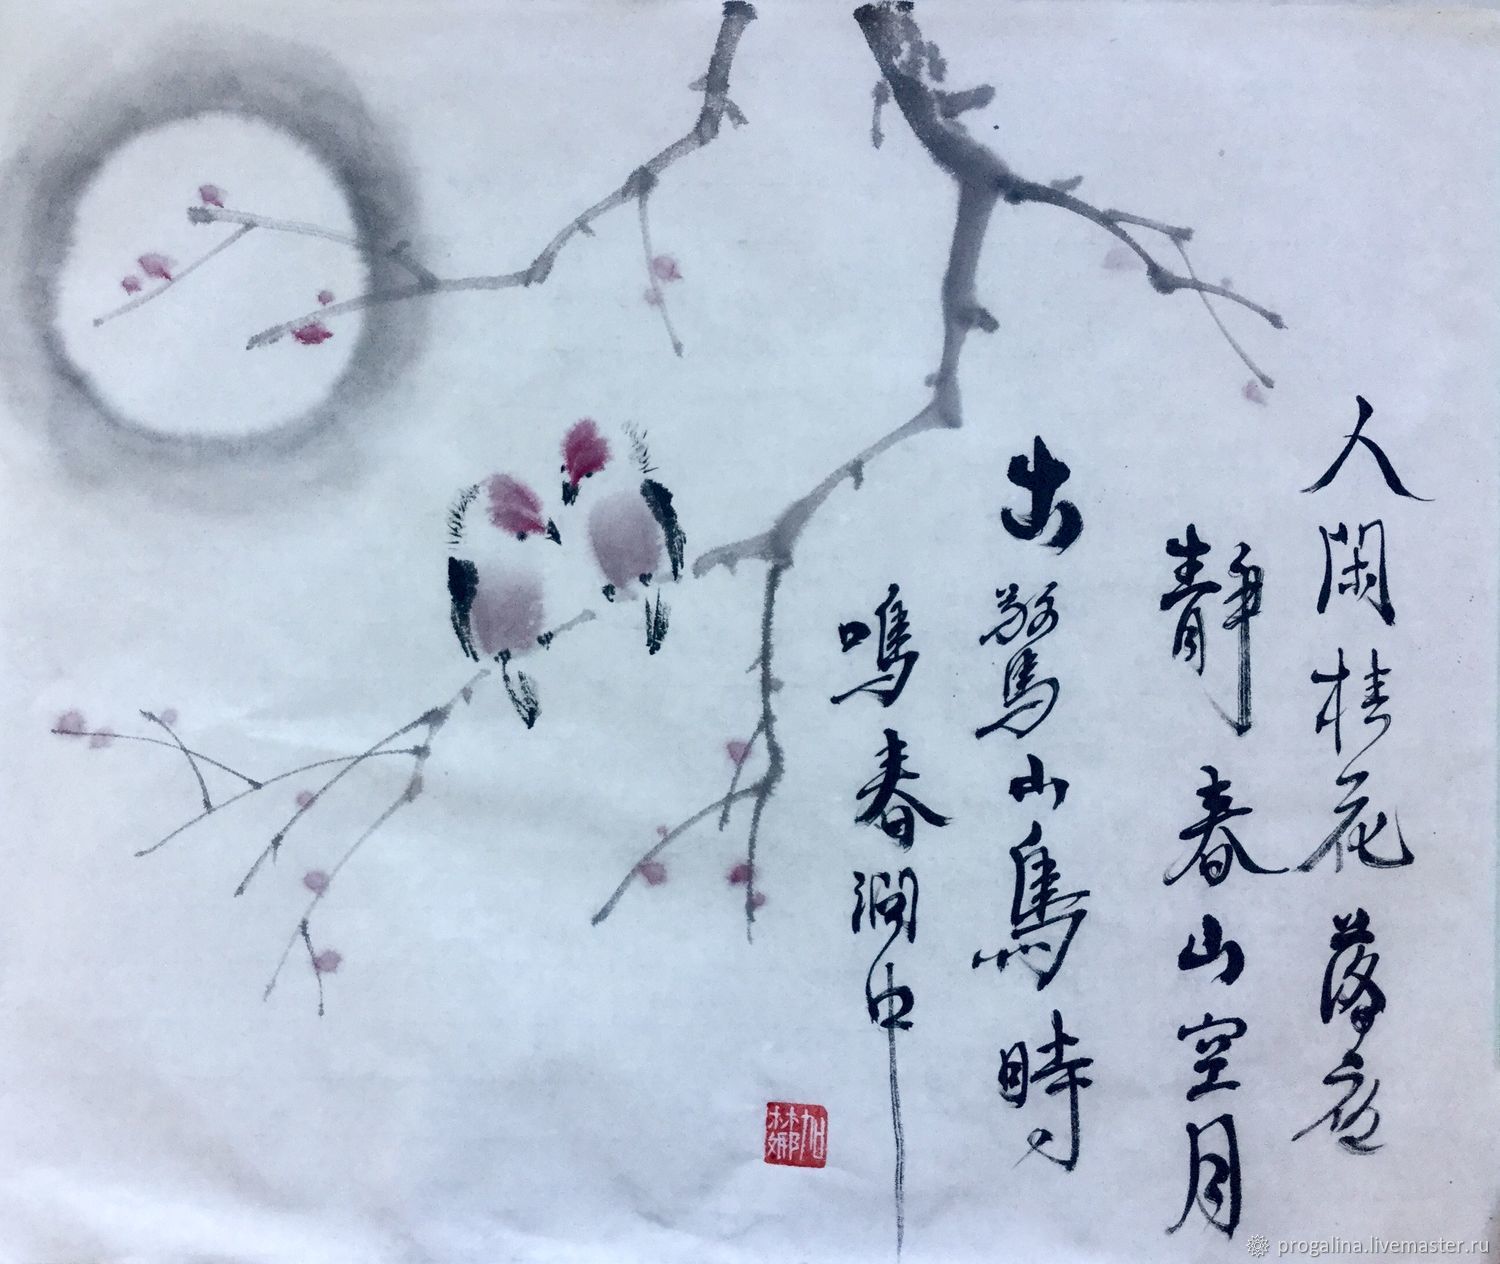 人閑桂花落夜
靜春山空月
出驚山鳥時
鳴春澗中
加林娜
progalina.livemaster.ru